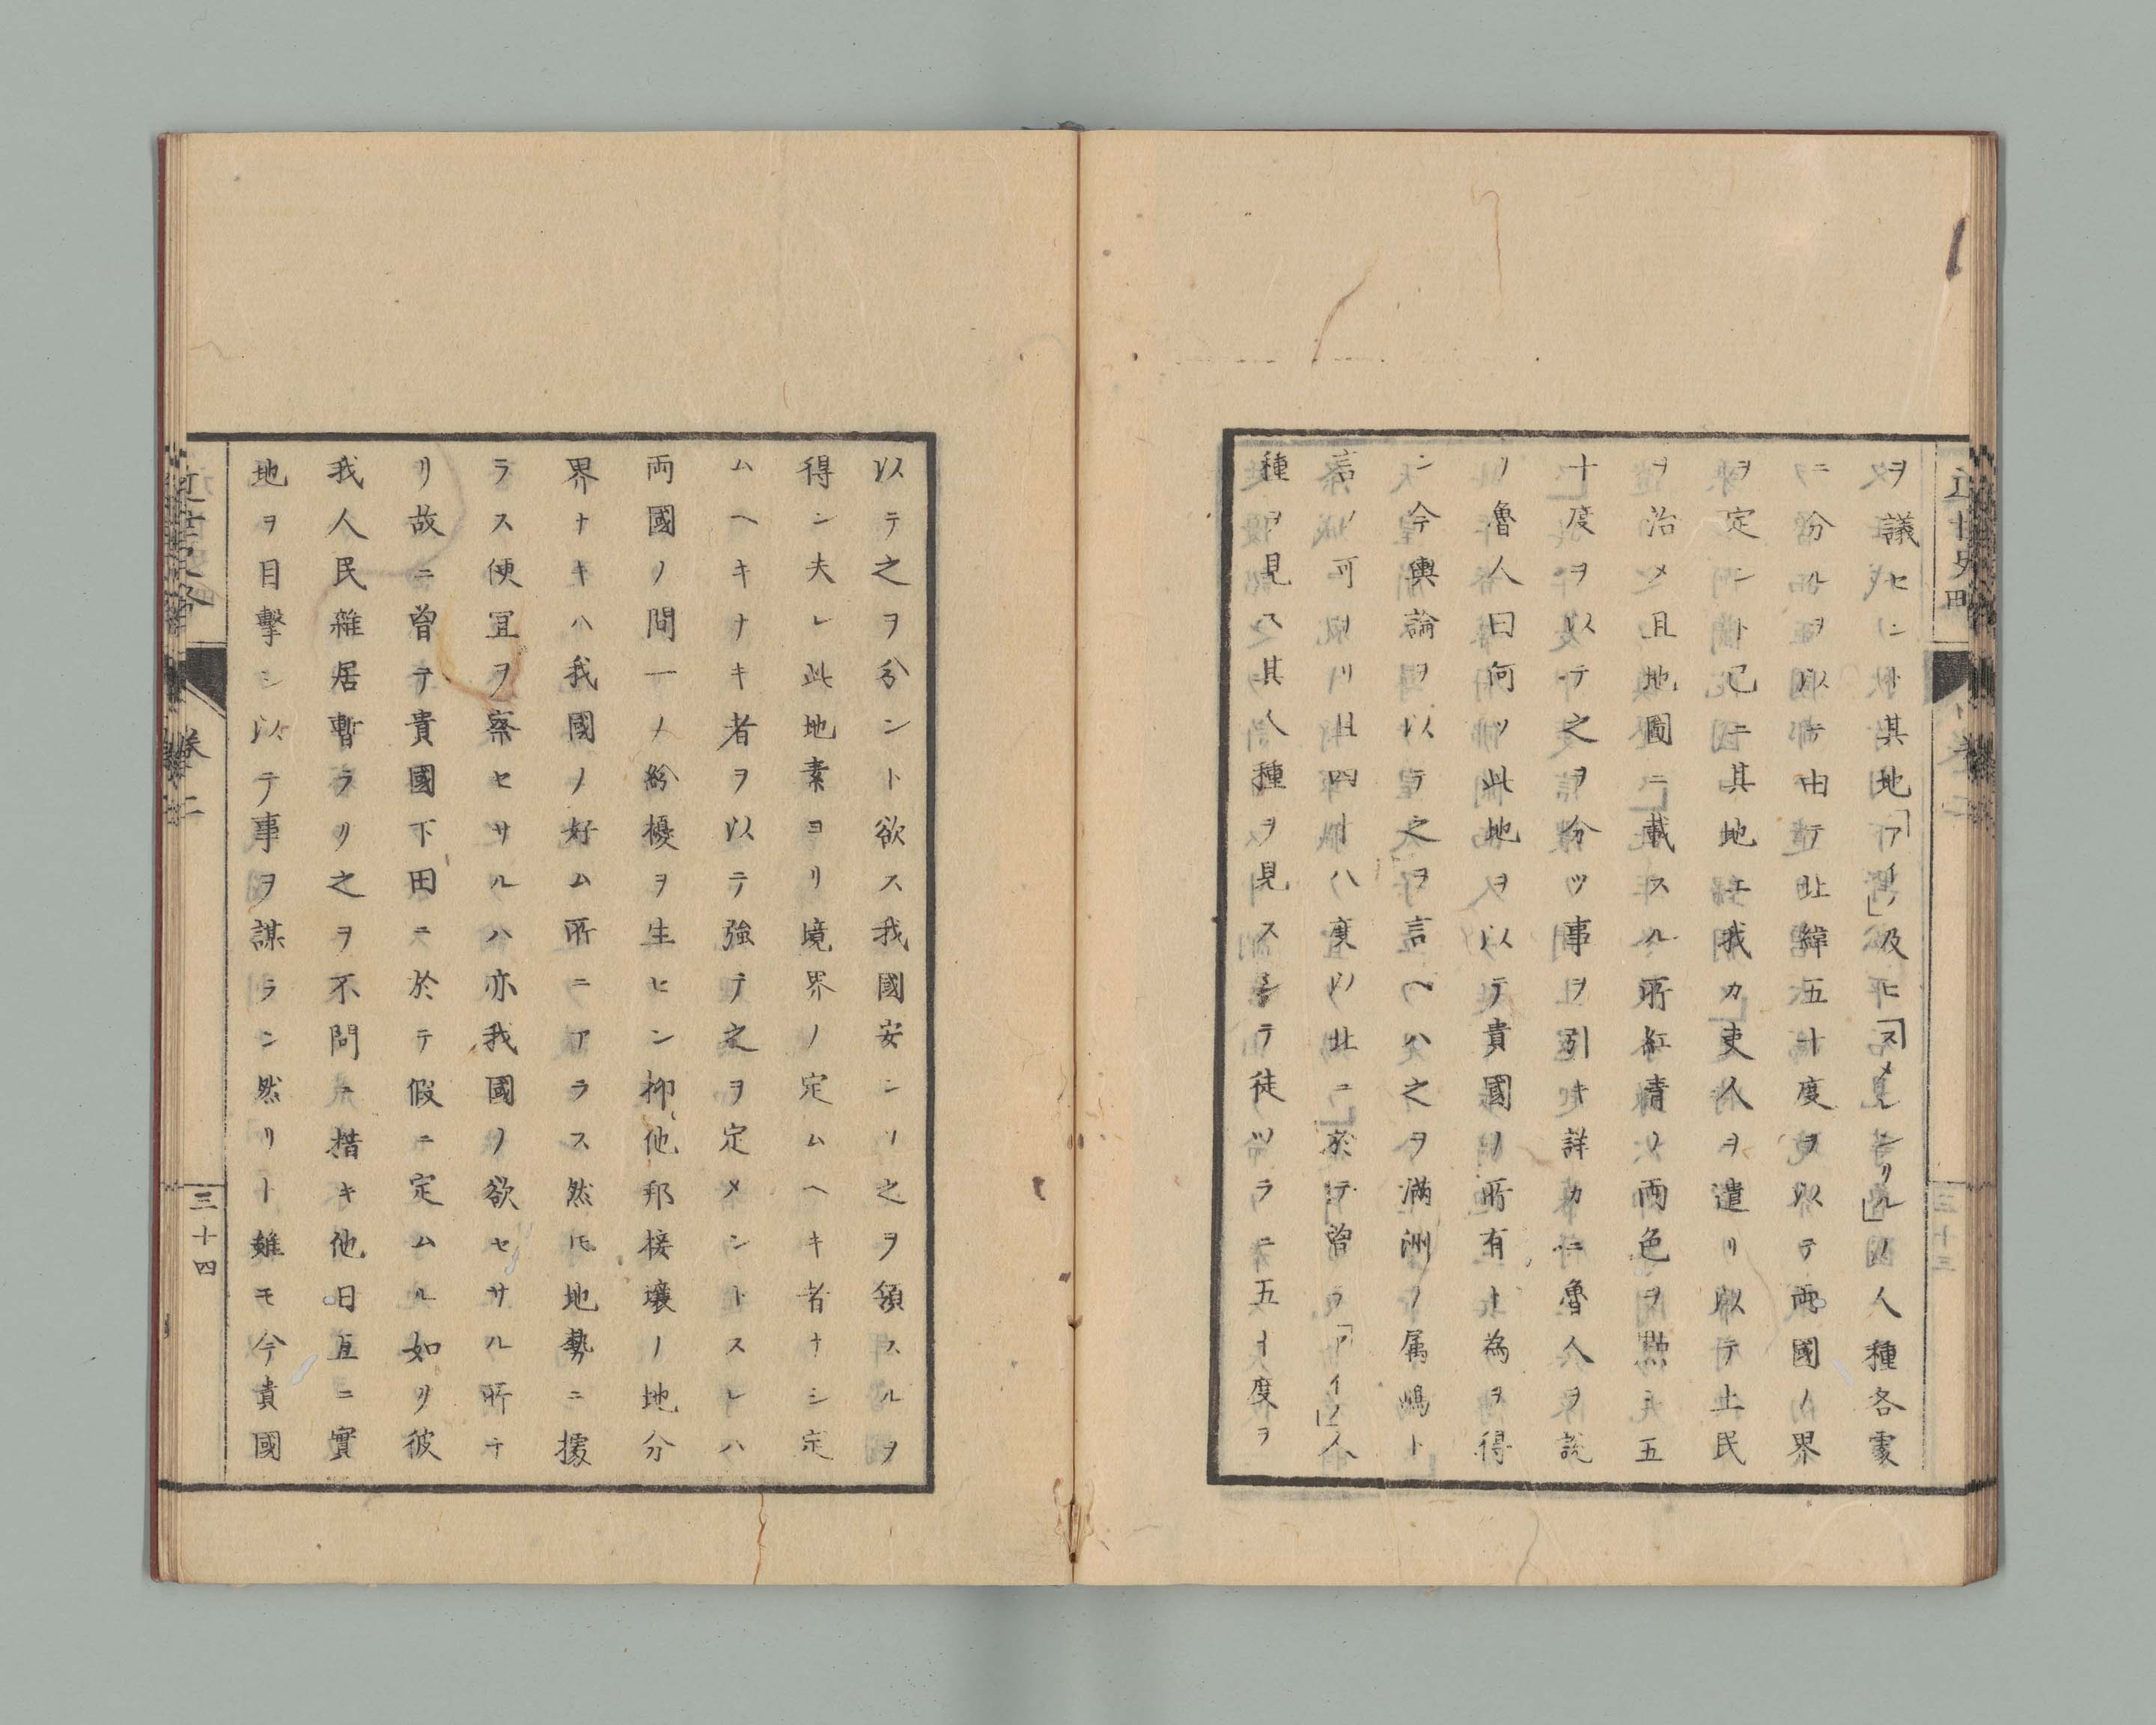 ヲ議セシト其地「アイノ」及ヒ「スメレンクル」ノ人種各處
ニ分ルヲ以テ由テ北緯五十度ヲ以テ両國ノ界
ヲ定ント已ニ其地エ我カ吏人ヲ遣リ以テ土民
ヲ治メ且地圖ニ載スル所紅青ノ両色ヲ點シ五
十度ヲ以テ之ヲ分ツ事ヲ引キ詳カニ魯人ヲ說
ノ魯人曰何ソ此地ヲ以テ貴國ノ所有ト為ヲ得
ン今輿論ヲ以テ之ヲ言ヘハ之ヲ満洲ノ属嶋ト
言ソ可ナリ且四十八度以北ニ於テ曽テ「アイノ」人
種ヲ見ス其人種ヲ見スシテ徒ツラニ五十度ヲ
以テ之ヲ分ント欲ス我國安ンソ之ヲ領スルヲ
得ン夫レ此地素ヨリ境界ノ定ムヘキ者ナシ定
ムヘキナキ者ヲ以テ強テ之ヲ定メントスレハ
両國ノ間一ノ紛擾ヲ生ヒン抑他邦接壤ノ地分
界ナキハ我國ノ好ム所ニアラス然𪜈地勢ニ據
ラス便宜ヲ察セサルハ亦我國ノ欲セサル所ナ
リ故ニ曽テ貴國下田ニ於テ假ニ定ムル如リ彼
我人民雜居暫ラリ之ヲ不問ニ措キ他日互ニ實
地ヲ目擊シ以テ事ヲ謀ラン然リト雖モ今貴國
近世史畧
卷二
三十四